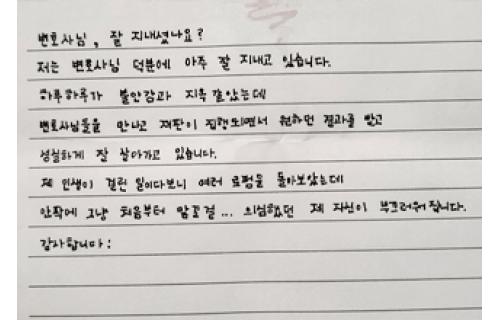 변호사님, 잘 지내셨나요?
저는 변호사님 덕분에 아주 잘 지내고 있습니다.
하루하루가 불안감과 지옥 같았는데
변호사님들을 만나고 재판이 진행되면서 원하던 결과를 받고
성실하게 잘 살아가고 있습니다.
제 인생이 걸린 일이다보니 여러 로펌을 돌아보았는데
안작에 그냥 처음부터 맡길걸... 의심했던 제 자신이 부끄러워집니다.
감사합니다: